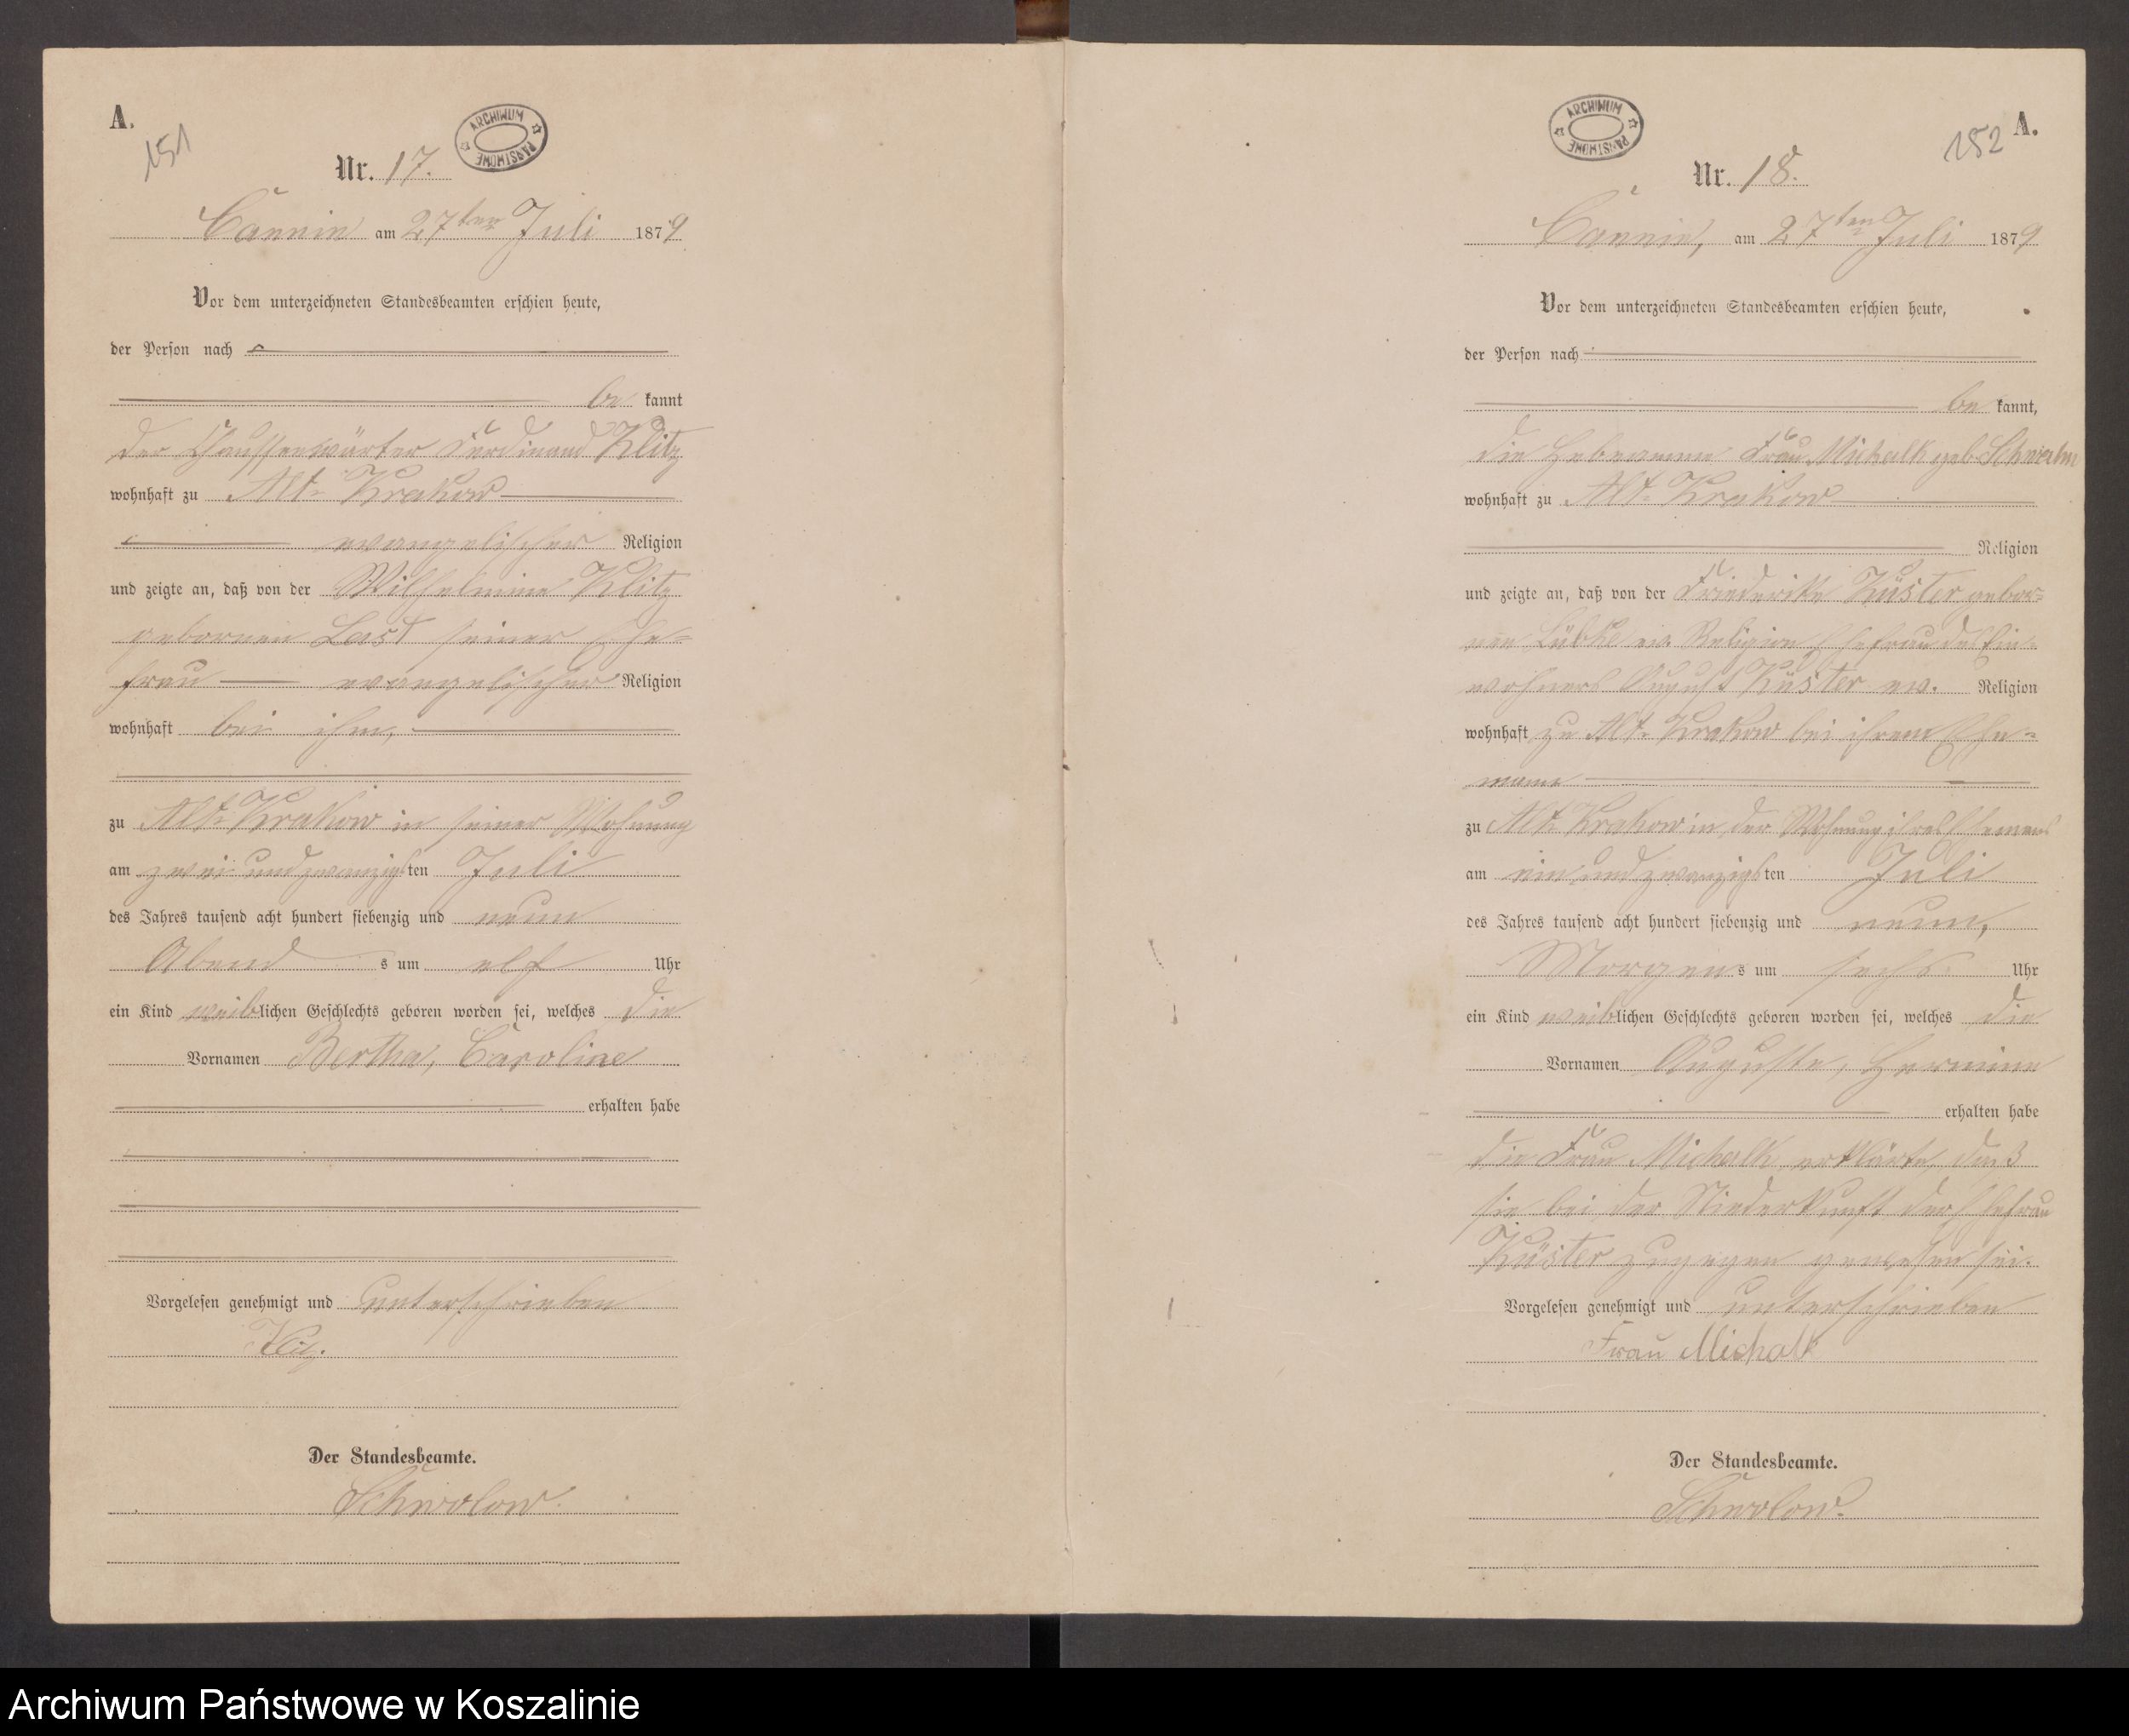 A.
151
ARCHIWUM PAŃSTWOWE
Nr. 17.
Cannin am 27ten Juli 1879
Vor dem unterzeichneten Standesbeamten erschien heute,
der Person nach
be kannt
der Chausseewärter Ferdinand Klitz
wohnhaft zu Alt-Krakow
evangelischer Religion
und zeigte an, daß von der Wilhelmine Klitz
gebornen Last seiner Ehe=
frau evangelischer Religion
wohnhaft bei ihm,
zu Alt-Krakow in seiner Wohnung
am zwei und zwanzigsten Juli
des Jahres tausend acht hundert siebenzig und neun
Abend s um elf Uhr
ein Kind weiblichen Geschlechts geboren worden sei, welches die
Vornamen Bertha, Caroline
erhalten habe
Vorgelesen genehmigt und unterschrieben
Klitz.
Der Standesbeamte.
Schwolow.
ARCHIWUM PAŃSTWOWE
152
A.
Nr. 18.
Cannin, am 27ten Juli 1879
Vor dem unterzeichneten Standesbeamten erschien heute,
der Person nach
be kannt,
die Hebeamme Frau Michalk geb.
wohnhaft zu Alt-Krakow
Religion
und zeigte an, daß von der Friederike Küster gebor=
nen Lübke ev. Religion Ehefrau des Ein=
wohners August Küster ev. Religion
wohnhaft zu Alt-Krakow bei ihrem Ehe=
mann
zu Alt-Krakow in der Wohnung ihres Ehemanns
am ein und zwanzigsten Juli
des Jahres tausend acht hundert siebenzig und neun,
Morgens um sechs Uhr
ein Kind weiblichen Geschlechts geboren worden sei, welches die
Vornamen Auguste, Hermine
erhalten habe
die Frau Michalk erklärte, daß
sie bei der Niederkunft der Ehefrau
Küster zugegen gewesen sei.
Vorgelesen genehmigt und unterschrieben
Frau Michalk
Der Standesbeamte.
Schwolow.
Archiwum Państwowe w Koszalinie